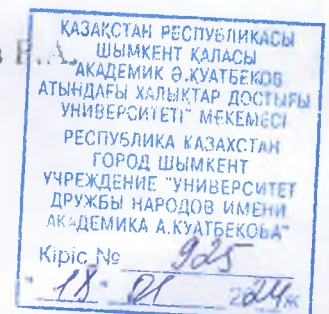 ҚАЗАҚСТАН РЕСПУБЛИКАСЫ
ШЫМКЕНТ ҚАЛАСЫ
"АКАДЕМИК Ә.ҚУАТБЕКОВ
АТЫНДАҒЫ ХАЛЫҚТАР ДОСТЫҒЫ
УНИВЕРСИТЕТІ" МЕКЕМЕСІ
РЕСПУБЛИКА КАЗАХСТАН
ГОРОД ШЫМКЕНТ
УЧРЕЖДЕНИЕ "УНИВЕРСИТЕТ
ДРУЖБЫ НАРОДОВ ИМЕНИ
АКАДЕМИКА А.КУАТБЕКОВА"
Кіріс № 925
"18" 01 2024ж